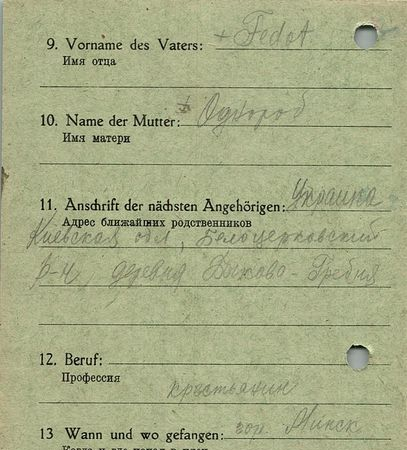 9. Vorname des Vaters: + Fedot
Имя отца
10. Name der Mutter: + Одхороб
Имя матери
11. Anschrift der nächsten Angehörigen: Украина
Адрес ближайших родственников
Киевская обл, Белоцерковский
р-н, деревня Быково-Гребня
12. Beruf:
Профессия
крестьянин
13 Wann und wo gefangen: гор. Минск